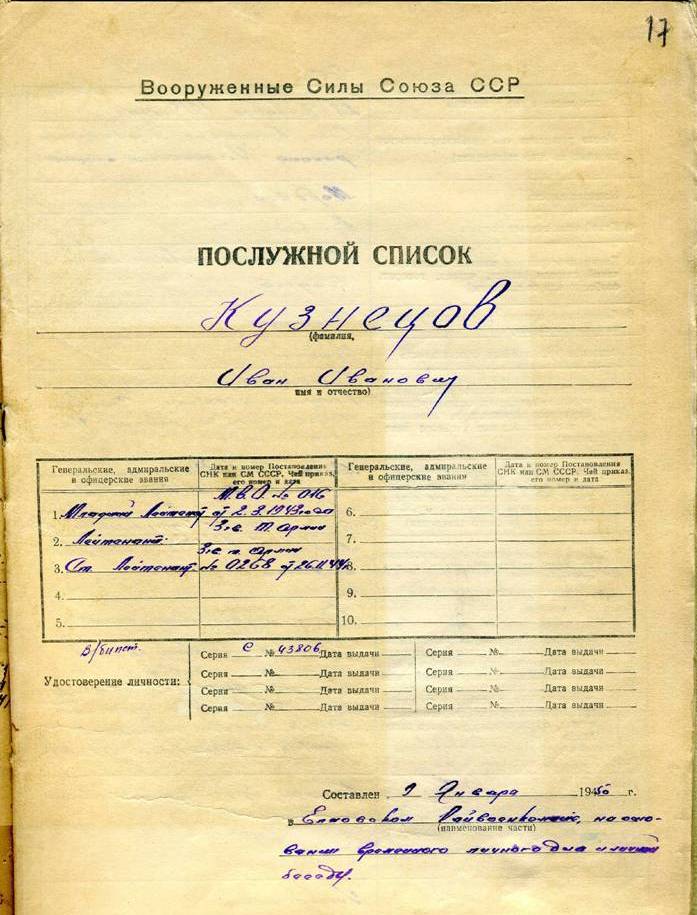 17
Вооруженные Силы Союза ССР
ПОСЛУЖНОЙ СПИСОК
Кузнецов
(фамилия,
Иван Иванович
имя и отчество)
Генеральские, адмиральские и офицерские звания
Дата и номер Постановления СНК или СМ СССР. Чей приказ, его номер и дата
Генеральские, адмиральские и офицерские звания
Дата и номер Постановления СНК или СМ СССР. Чей приказ, его номер и дата
М.В.О. № 016
1. Младший Лейтенант от 2.3.1943 года 6.
2. Лейтенант. 7.
3. Ст. Лейтенант № 0268 от 26.11.44г. 8.
4. 9.
5. 10.
В/билет.
Удостоверение личности:
Серия С № 43806 Дата выдачи Серия № Дата выдачи
Серия № Дата выдачи Серия № Дата выдачи
Серия № Дата выдачи Серия № Дата выдачи
Серия № Дата выдачи Серия № Дата выдачи
Составлен 9 Января 1950 г.
в Райвоенкомате, на осно-
(наименование части)
вании временного личного дела и личной
беседы.